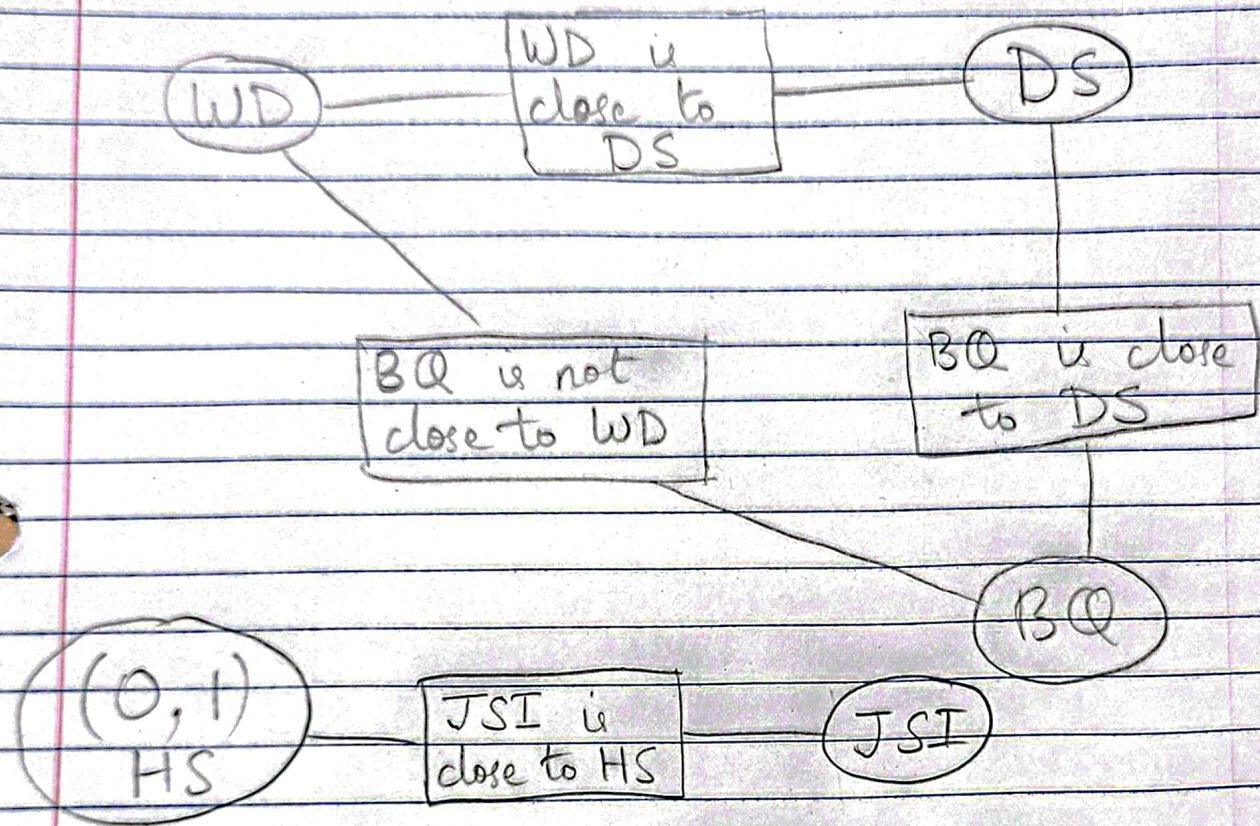 WD
WD is
close to
DS
DS
BQ is not
close to WD
BQ is close
to DS
BQ
(0, 1)
HS
JSI is
close to HS
JSI